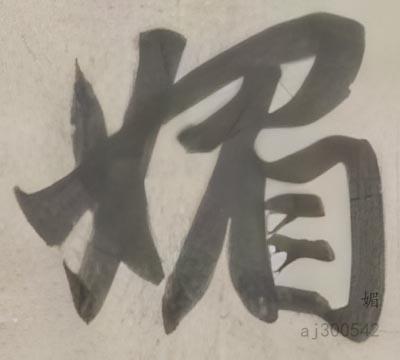 媚
媚
aj300542